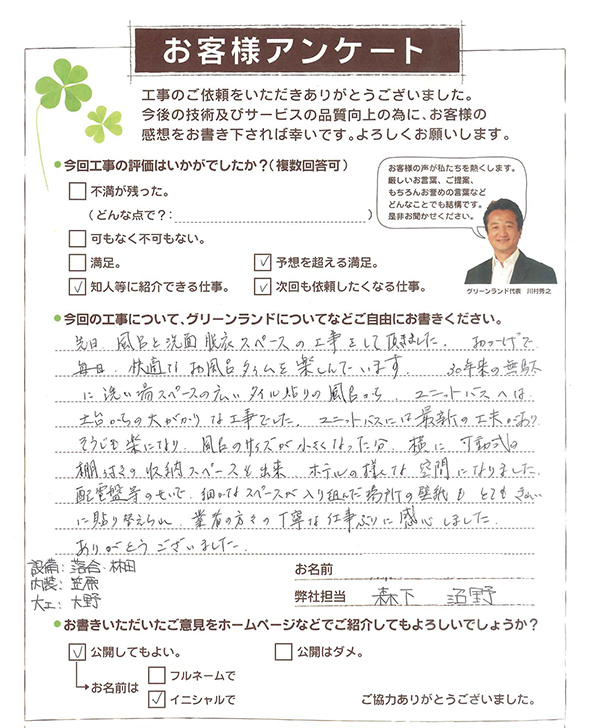 お客様アンケート
工事のご依頼をいただきありがとうございました。
今後の技術及びサービスの品質向上の為に、お客様の
感想をお書き下されば幸いです。よろしくお願いします。
●今回工事の評価はいかがでしたか?(複数回答可)
不満が残った。
(どんな点で?: )
可もなく不可もない。
満足。
✓ 予想を超える満足。
✓ 知人等に紹介できる仕事。
✓ 次回も依頼したくなる仕事。
お客様の声が私たちを熱くします。
厳しいお言葉、ご提案、
もちろんお誉めの言葉など
どんなことでも結構です。
是非お聞かせください。
グリーンランド代表 川村秀之
●今回の工事について、グリーンランドについてなどご自由にお書きください。
先日、風呂と洗面脱衣スペースの工事をして頂きました。おかげで
毎日、快適なお風呂タイムを楽しんでいます。30年来の無駄
に洗い場スペースの広いタイル貼りの風呂から、ユニットバスへは
土台からの大がかりな工事でした。ユニットバスには最新の工夫があり
そうじも楽になり、風呂のサイズが小さくなった分、横に可動式の
棚付きの収納スペースも出来、ホテルの様な空間になりました。
配電盤等のせいで、細かなスペースが入り組んだ場所の壁紙もとてもきれい
に貼り替えられ、業者の方々の丁寧な仕事ぶりに感心しました。
ありがとうございました。
設備: 落合・林田
内装: 笠原
大工: 大野
お名前
弊社担当 森下 沼野
●お書きいただいたご意見をホームページなどでご紹介してもよろしいでしょうか?
✓ 公開してもよい。
公開はダメ。
お名前は
フルネームで
✓ イニシャルで
ご協力ありがとうございました。